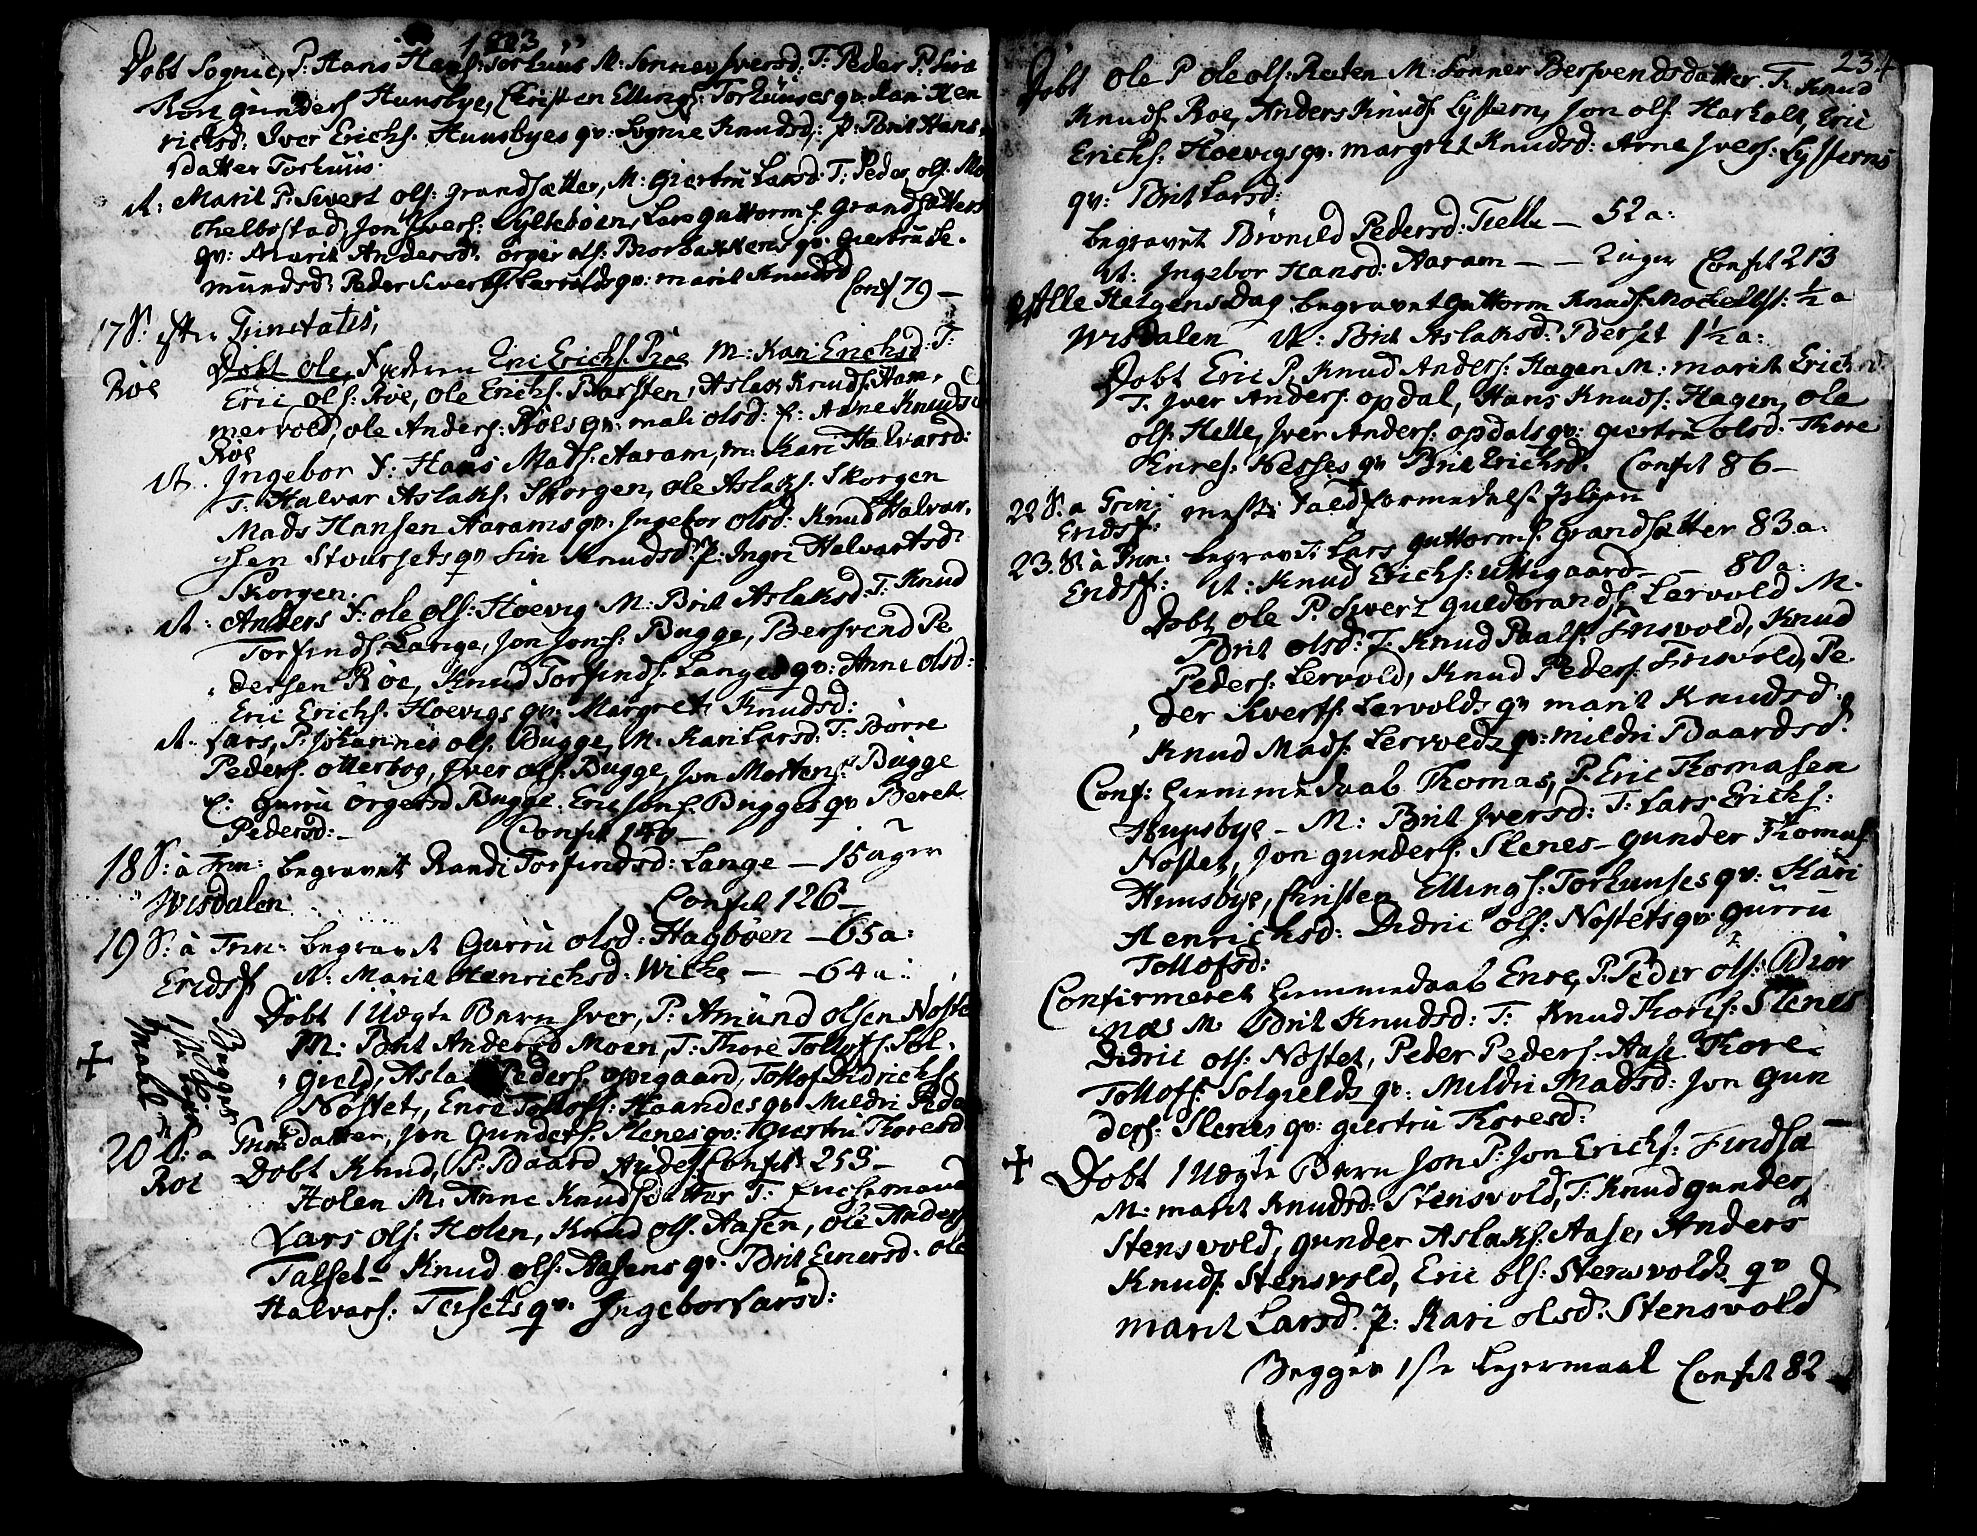 1803
Døbt Sognie, P: Hans Hans: Torhuus M: Sønnev Iversd: T: Peder P: Lira
Roe gunders Huusbye, Christen Ellings: Torhuuses qv: Kari Hen
richsd: Iver Erichs: Huusbyes qv: Sognie Knudsd: p: Brit Hans
datter Torhuus
it: Marit P: Sivert ols: Grandsætter, M: Giertru Larsd: T: Peder ols: Mo
chelbostad, Jon Ivers: Syltebøen, Lars Guttorms: Grandsætters
qv: Marit Andersd: Ørger ols: Biorbakkens qv: Giertru Se
mundsd: Peder Siverts: Lervolds qv: marit Knudsd
Conf 79 —
17 S: efter Trinitatis,
Roe Døbt Ole, Faderen Eric Erichs: Roe M: Kari Erichsd: T:
Eric ols: Roe, Ole Erichs: Barsten, Aslak Knuds: Ham
mervold, Ole Anders: Hols qv: mali olsd: p: Anne Knudsd
Roe
it. Ingebor F: Hans Mads: Aaram, m: Kari Halvarsd:
T: Halvar Aslaks: Skorgen, Ole Aslaks: Skorgen
Mads Hansen Aarams qv: Ingebor olsd: Knud Halvar
sen Stoursets qv Siri Knudsd: p: Ingri Halvarsd
Skorgen.
it: Anders F: Ole ols: Hoevig M: Brit Aslaksd: T: Knud
Torfinds: Lange, Jon Jons: Bugge, Bersvend Pe
dersen Roe, Knud Torfinds: Langes qv: Anne olsd:
Eric Erichs: Hoevigs qv: Margret Knudsd:
it: Lars, P: Johannes ols: Bugge, M: Kari Larsd: T: Børre
Peders: otterbog, Iver ols: Bugge, Jon Mortens: Bugge
p: Gurru Ørgersd Bugge. Eric Jons: Bugges qv Beret
Pedersd: — Confit 150 —
18 S: à Trin: begravet Randi Torfindsd: Lange — 15 uger
Wisdalen Confit 126 —
19 S: à Trin: begravet Gurru olsd: Hagbøen — 65 a:
Eridsf it: Marit Henrichsd: Wike — 64 a:
Døbt 1 Uægte Barn Iver, P: Amund olsen Nøste
M: Brit Andersd Moen, T: Thore Tollofs: Sol
gield, Aslak Peders: opigaard, Tollof Didrichs:
Nøstet, Enre Tollofs: Haandes qv Mildri Peders
datter, Jon Gunders: Slenes qv: Giertru Thoresd
Begges 1ste Leier maal
20 S: a Trin: Confit: 253 —
Roe Døbt Knud, P: Baard Anders:
Holen M: Anne Knudsdatter T:
Lars ols: Holen, Knud ols: Aasen, Ole Anders
Talset — Knud ols: Aasens qv: Brit Einersd: ole
Halvars: Tersets qv: Ingebor Larsd:
234
Døbt Ole P Ole ols: Reiten M: Sønner Bersvendsdatter T: Knud
Knuds: Roe, Anders Knuds: Lystern, Jon ols: Harhols, Eric
Erichs: Hoevigs qv: margret Knudsd: Arne Ivers: Lysterns
qv: Brit Larsd:
begravet Brønild Pedersd: Tielle — 52 a:
it: Ingebor Hansd: Aaram — — 2 uger Confit 213
Alle Helgens Dag begravet Guttorm Knuds: Mochelbst: ½ a
Wisdalen it: Brit Aslaksd: Berset 1½ a:
Døbt Eric P. Knud Anders: Hagen M: marit Erichsd:
T: Iver Anders: opdal, Hans Knuds: Hagen, ole
ols: Helle, Iver Anders: opdals qv: giertru olsd: Thore
Enres: Nesses qv Brit Erichsd: Confit 86 —
22 S: a Trin: messe Fald formedelst
Eridsf:
23. S: à Trin: begravet Lars Guttorms: Grandsætter 83 a:
Eridsf: it: Knud Erichs: uttigaard — — 80 a:
Døbt ole P: Sivert Guldbrands: Lervold M:
Brit olsd: T: Knud Paals: Frisvold, Knud
Peders: Lervold, Knud Peders: Frisvold, Pe
der Siverts: Lervolds qv marit Knudsd:
Knud Mads: Lervolds qv: mildri Baardsd:
Conf: hiemmedaab Thomas, P: Eric Thomasen
Huusbye — M: Brit Iversd: T: Lars Erichs:
Nøstet, Jon gunders: Slenes — gunder Thomas
Huusbye, Christen Ellings: Torhuuses qv: Kari
Henrichsd: Didric ols: Nøstets qv: gurru
Tollofsd:
Confirmeret hiemmedaab Enre, P: Peder ols: Bior
næs M: Brit Knudsd: T: Knud Thores: Slenes
Didric ols: Nøstet, Peder Peders: Aase Thore
Tollofs: Solgields qv: Mildri Madsd: Jon Gun
ders: Slenes qv: giertru Thoresd:
Døbt 1 Uægte Barn Jon P: Jon Erichs: Findsæ
M: marit Knudsd: Stensvold, T: Knud gunders
Stensvold, gunder Aslaks: Aase, Anders
Knuds: Stensvold, Eric ols: Stensvolds qv
marit Larsd: p: Kari olsd: Stensvold
Begges 1ste Leyermaal Confit 82